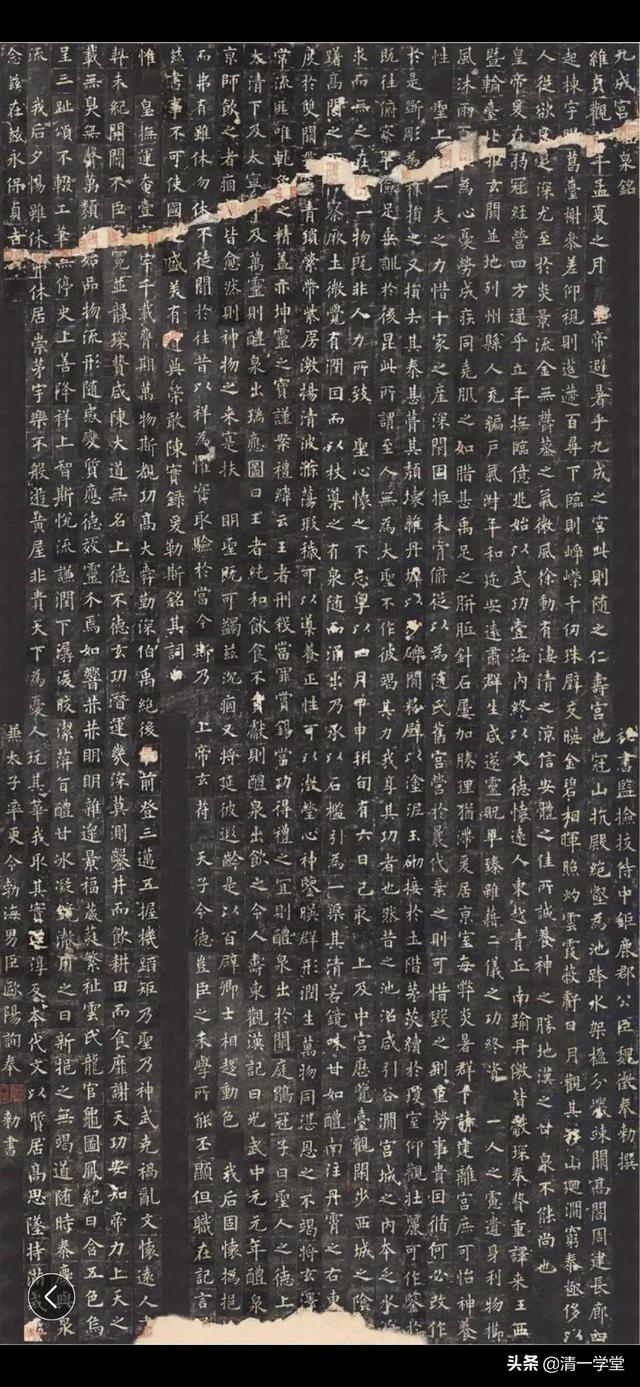 九成宮泉銘 祕書監撿挍侍中鉅鹿郡公臣魏徵奉勅撰
維貞觀年孟夏之月 皇帝避暑乎九成之宮此則随之仁壽宮也冠山抗殿絶壑為池跨水架楹分巖竦闕高閣周建長廊四
起棟宇葛臺榭參差仰視則迢遰百尋下臨則崢嶸千仞珠璧交暎金碧相暉照灼雲霞蔽虧日月觀其移山迴澗窮泰極侈以
人從欲良足深尤至於炎景流金無欝蒸之氣微風徐動有淒清之涼信安體之佳所誠養神之勝地漢之甘泉不能尚也
皇帝爰在弱冠經營四方逮乎立年撫臨億兆始以武功壹海內終以文德懷遠人東越青丘南踰丹儌皆獻琛奉贄重譯來王西
暨輪臺北玄闕並地列州縣人充編戶氣淑年和迩安遠肅群生咸遂靈貺畢臻雖藉二儀之功終資 一人之慮遺身利物櫛
風沐雨為心憂勞成疾同堯肌之如腊甚禹足之胼胝針石屢加腠理猶滯爰居京室每弊炎暑群下請建離宮庶可怡神養
性 聖上一夫之力惜十家之產深閉固拒未肯俯從以為随氏舊宮營於曩代棄之則可惜毀之則重勞事貴因循何必改作
於是斵彫為損之又損去其泰甚葺其頹壞雜丹墀以沙礫間粉壁以塗泥玉砌接於土階茅茨續於瓊室仰觀壯麗可作鑒於
既往俯察卑儉足垂訓於後昆此所謂至人無為大聖不作彼竭其力我享其功者也然昔之池沼咸引谷澗宮城之內本乏水源
求而無之在一物既非人力所致 聖心懷之不忘粵以四月甲申朔旬有六日己亥 上及中宮歷覽臺觀閑步西城之陰
躊躇高閣之察厥土微覺有潤因而以杖導之有泉随而涌出乃承以石檻引為一渠其清若鏡味甘如醴南注丹霄之右東
度於雙闕青瑣縈帶紫房激揚清波滌蕩瑕穢可以導養正性可以澂瑩心神鑒暎群形潤生萬物同湛恩之不竭將玄澤
常流匪唯乾之精蓋亦坤靈之寶謹案禮緯云王者刑殺當罪賞錫當功得禮之宜則醴泉出於闕庭鶡冠子曰聖人之德上
太清下及太寧及萬靈則醴泉出瑞應圖曰王者純和飲食不貢獻則醴泉出飲之令人壽東觀漢記曰光武中元元年醴泉
京師飲之者痼皆愈然則神物之來寔扶 明聖既可蠲兹沉痼又將延彼遐齡是以百辟卿士相趍動色 我后固懷撝挹
而弗有雖休勿休不徒聞於往昔以祥為懼實取驗於當今斯乃 上帝玄符 天子令德豈臣之末學所能丕顯但職在記言
兹書事不可使國之盛美有典策敢陳實錄爰勒斯銘其詞
惟 皇撫運奄壹宇千載膺期萬物斯覩功高大舜勤深伯禹絶後前登三邁五握機蹈矩乃聖乃神武克禍亂文懷遠人書
契未紀開闢不臣冕並襲琛贄咸陳大道無名上德不德玄功潛運幾深莫測鑿井而飲耕田而食靡謝天功安知帝力上天之
載無臭無聲萬類始品物流形随感變質應德效靈介焉如響赫赫明明雜遝景福葳蕤繁祉雲氏龍官龜圖鳳紀日含五色烏
呈三趾頌不輟工筆無停史上善降祥上智斯悅流謙潤下潺湲皎潔蓱旨醴甘冰凝鏡澂用之日新挹之無竭道随時泰慶與泉
流 我后夕惕雖休弗休居崇茅宇樂不般遊黃屋非貴天下為憂人玩其華我取其實還淳反本代文以質居高思墜持滿戒
念兹在兹永保貞吉 兼太子率更令勃海男臣歐陽詢奉 勅書
头条 @清一学堂